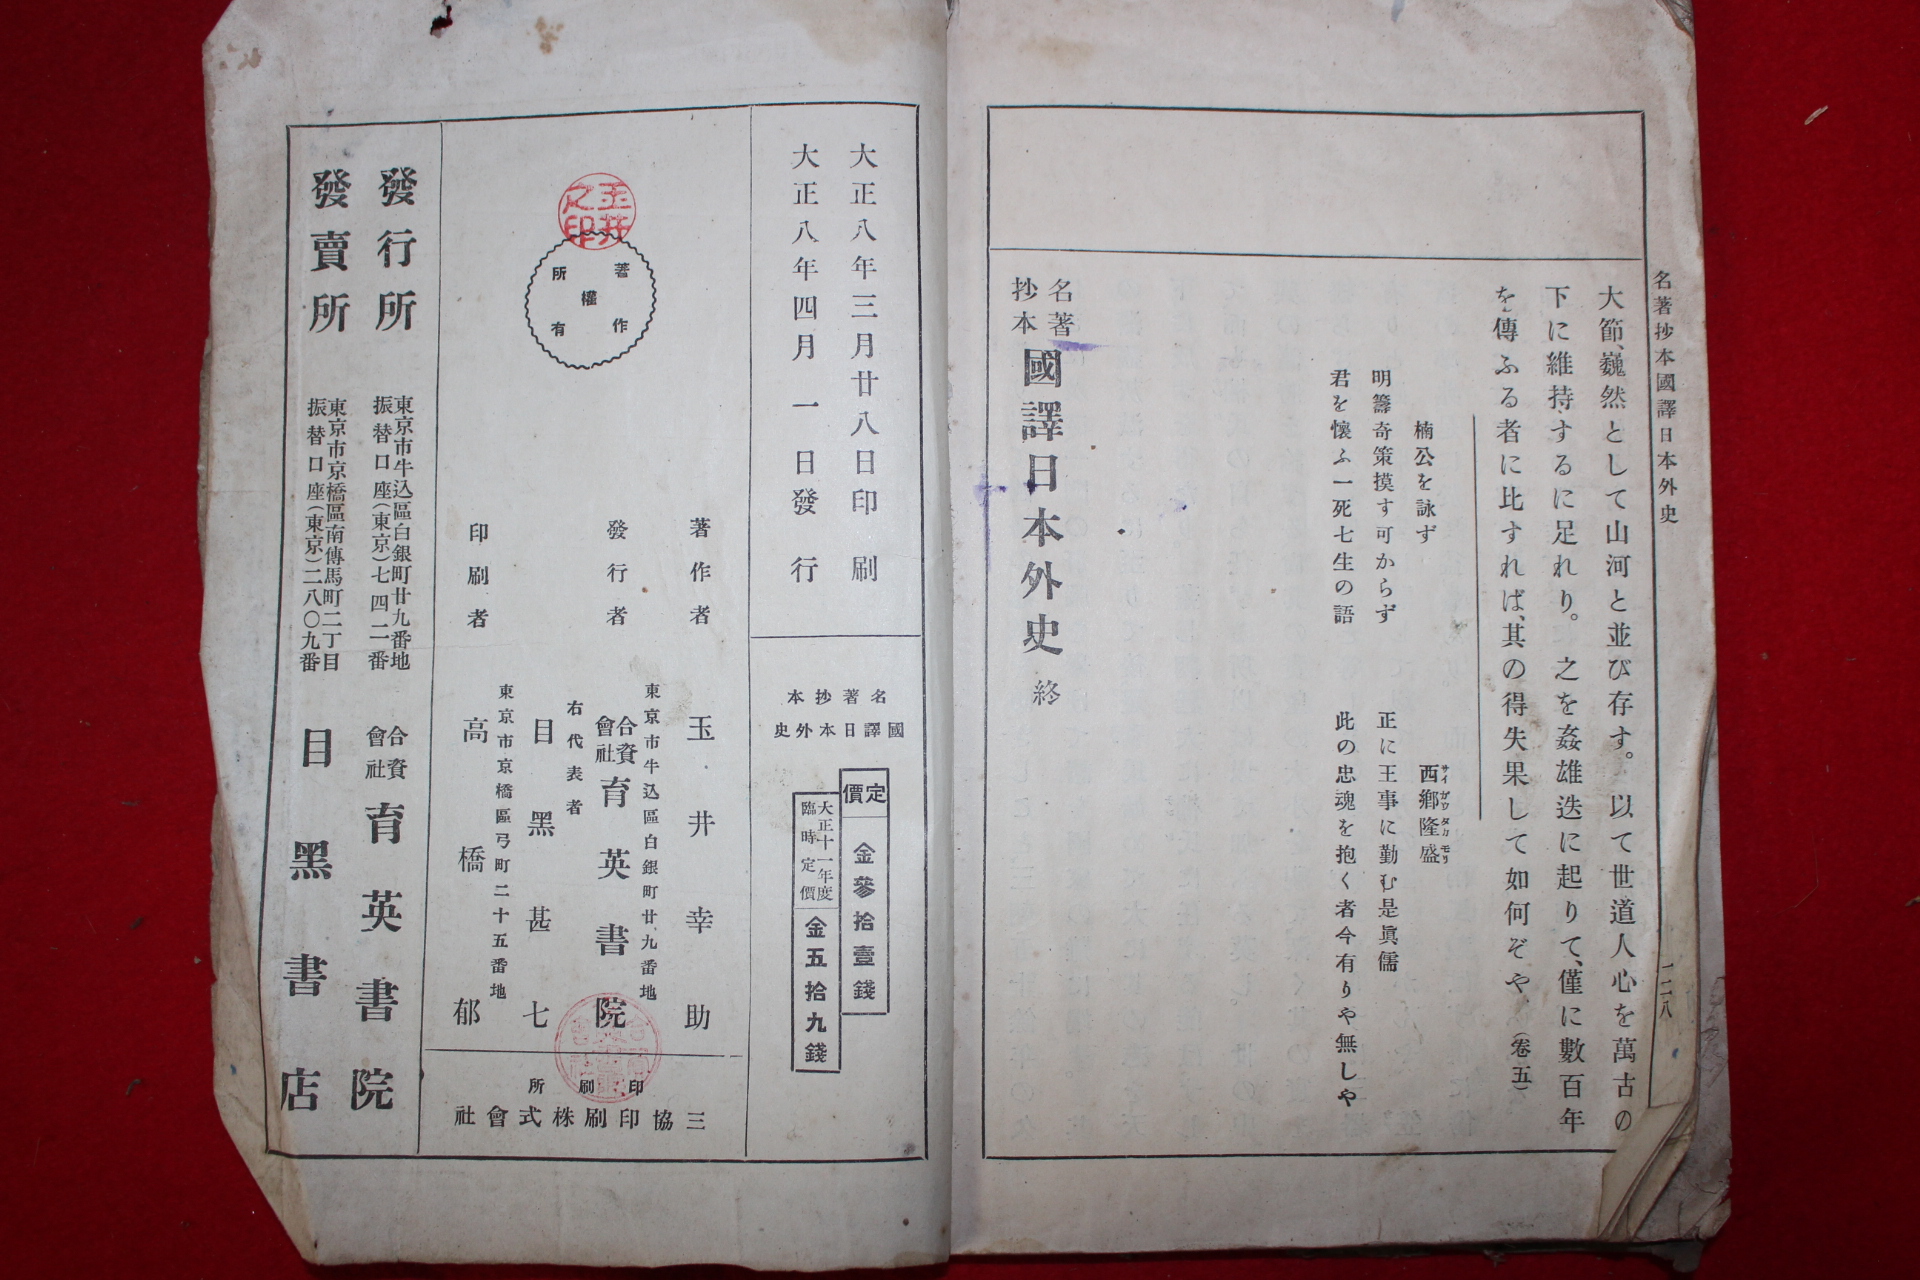 名著抄本國譯日本外史
一二八
大節、巍然として山河と並び存す。以て世道人心を萬古の
下に維持するに足れり。之を姦雄迭に起りて、僅に數百年
を傳ふる者に比すれば、其の得失果して如何ぞや、(卷五)
楠公を詠ず
西郷隆盛
サイガウタカモリ
明籌奇策摸す可からず
正に王事に勤む是眞儒
君を懷ふ一死七生の語
此の忠魂を抱く者今有りや無しや
名著抄本
國譯日本外史
終
大正八年三月廿八日印刷
大正八年四月一日發行
名著抄本
國譯日本外史
定價
金參拾壹錢
大正十一年度
臨時定價
金五拾九錢
玉井之印
著作權所有
著作者
玉井幸助
東京市牛込區白銀町廿九番地
發行者
合資會社
育英書院
右代表者
目黑甚七
東京市京橋區弓町二十五番地
印刷者
高橋郁
印刷所
三協印刷株式會社
發行所
東京市牛込區白銀町廿九番地
振替口座(東京)七四二番
合資會社
育英書院
發賣所
東京市京橋區南傳馬町二丁目
振替口座(東京)二八〇九番
目黑書店